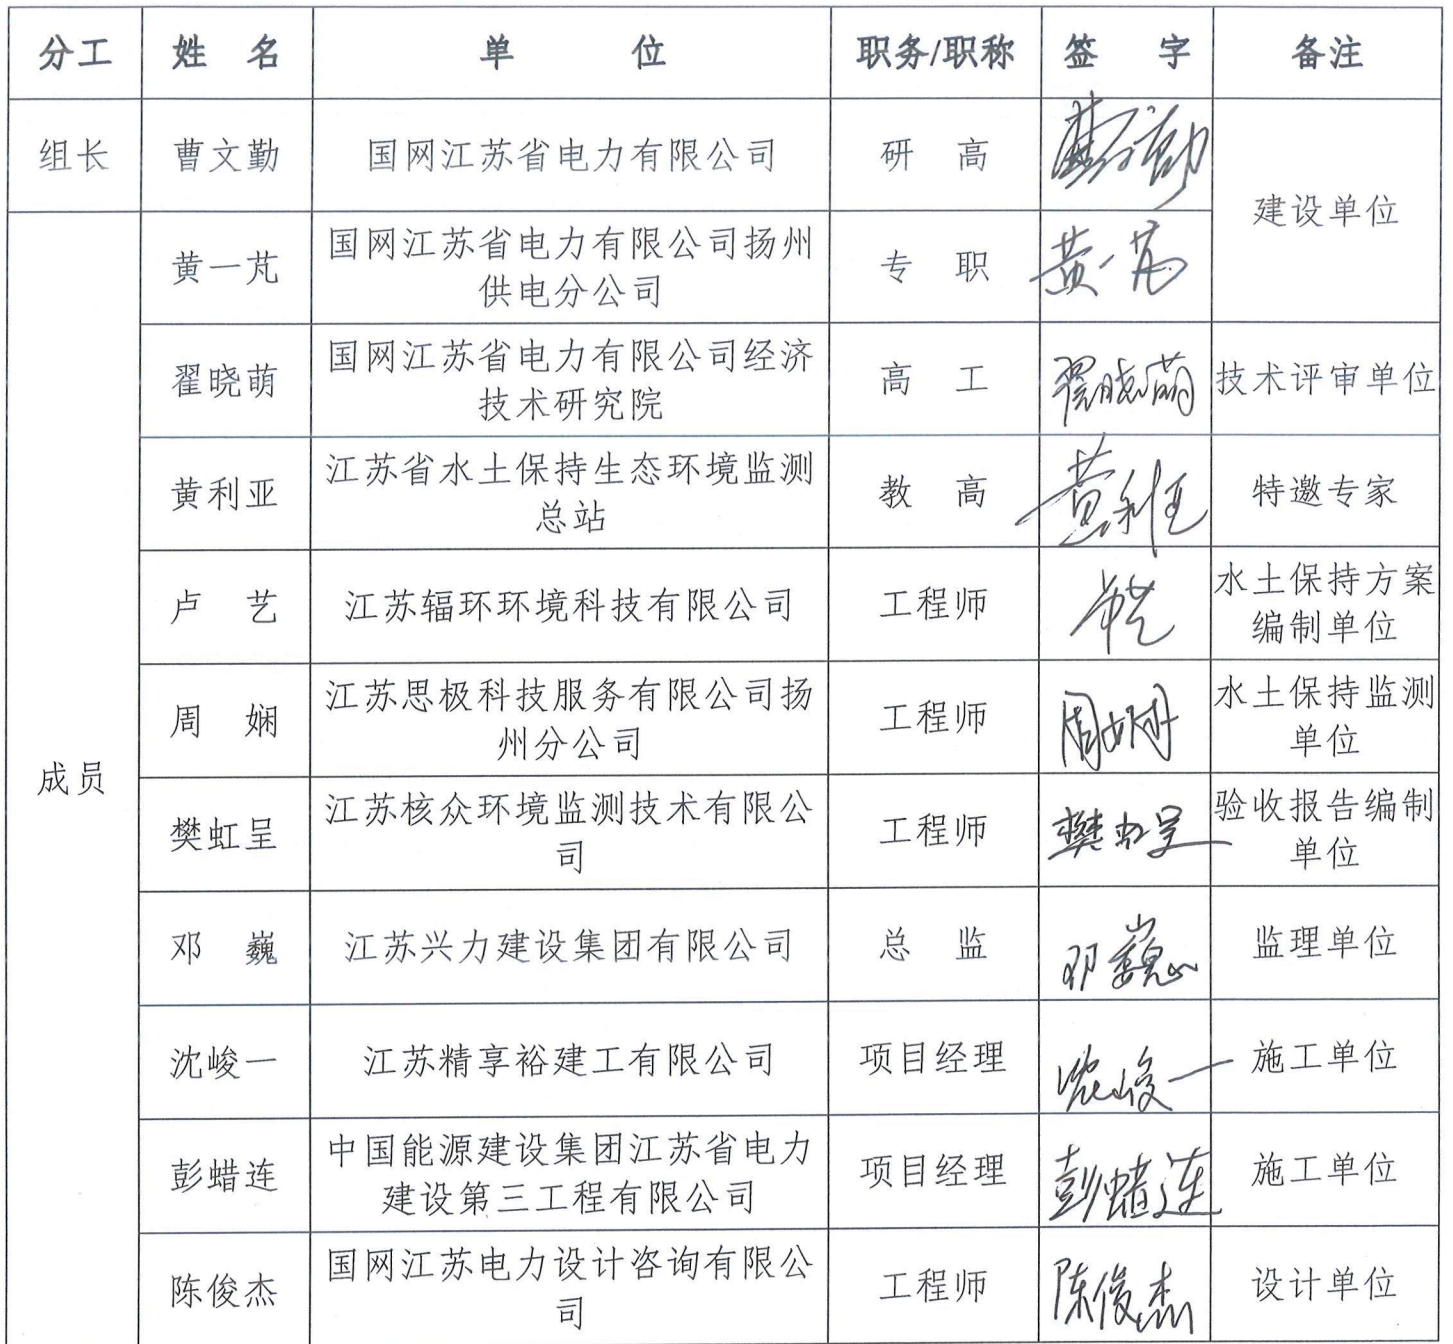 分工 姓 名 单 位 职务/职称 签 字 备注
组长 曹文勤 国网江苏省电力有限公司 研 高 曹文勤 建设单位
成员
黄一芃 国网江苏省电力有限公司扬州
供电分公司 专 职 黄一芃
翟晓萌 国网江苏省电力有限公司经济
技术研究院 高 工 翟晓萌 技术评审单位
黄利亚 江苏省水土保持生态环境监测
总站 教 高 黄利亚 特邀专家
卢 艺 江苏辐环环境科技有限公司 工程师 卢艺 水土保持方案
编制单位
周 娴 江苏思极科技服务有限公司扬
州分公司 工程师 周娴 水土保持监测
单位
樊虹呈 江苏核众环境监测技术有限公
司 工程师 樊虹呈 验收报告编制
单位
邓 巍 江苏兴力建设集团有限公司 总 监 邓巍 监理单位
沈峻一 江苏精享裕建工有限公司 项目经理 沈峻一 施工单位
彭蜡连 中国能源建设集团江苏省电力
建设第三工程有限公司 项目经理 彭蜡连 施工单位
陈俊杰 国网江苏电力设计咨询有限公
司 工程师 陈俊杰 设计单位